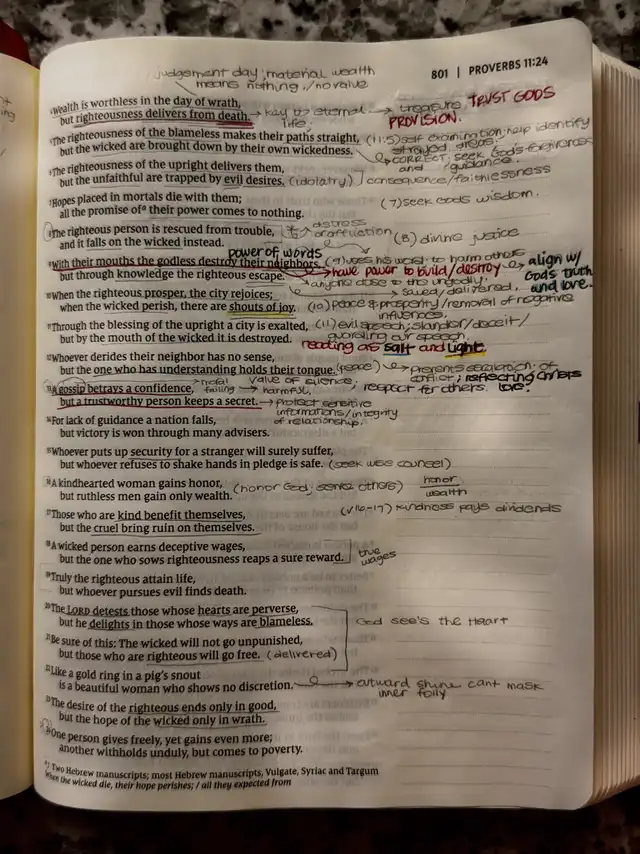 judgement day; material wealth
means nothing / no value
801 | PROVERBS 11:24
4 Wealth is worthless in the day of wrath,
but righteousness delivers from death. → key to eternal life. → treasure TRUST GODS PROVISION.
5 The righteousness of the blameless makes their paths straight, (11:5) self examination; help identify
but the wicked are brought down by their own wickedness. strayed areas
→ CORRECT; seek God's forgiveness
and guidance.
6 The righteousness of the upright delivers them,
but the unfaithful are trapped by evil desires. (idolatry) / consequence / faithlessness
7 Hopes placed in mortals die with them; (7) seek Gods wisdom.
all the promise of a their power comes to nothing.
8 The righteous person is rescued from trouble, distress
or affliction
and it falls on the wicked instead. (8) divine justice
power of words
9 With their mouths the godless destroy their neighbors, (9) uses his word to harm others
but through knowledge the righteous escape. → have power to build/destroy → align w/
God's truth
and love.
anyone close to the ungodly.
saved / delivered.
10 When the righteous prosper, the city rejoices;
when the wicked perish, there are shouts of joy. (10) Peace & prosperity / removal of negative
influences.
11 Through the blessing of the upright a city is exalted, (11) evil speech; slander / deceit /
guarding our speech
but by the mouth of the wicked it is destroyed.
reading as salt and light.
12 Whoever derides their neighbor has no sense,
but the one who understanding holds their tongue. (peace) → prevents escalation of
conflict; reflecting Christs
love.
13 A gossip betrays a confidence, → moral
failing → harmful. value of silence; respect for others.
but a trustworthy person keeps a secret. → protect sensitive
informations / integrity
of relationship.
14 For lack of guidance a nation falls,
but victory is won through many advisers.
15 Whoever puts up security for a stranger will surely suffer,
but whoever refuses to shake hands in pledge is safe. (seek wise counsel)
16 A kindhearted woman gains honor, (honor God; serve others) honor
wealth
but ruthless men gain only wealth.
17 Those who are kind benefit themselves, (v16-17) kindness pays dividends
but the cruel bring ruin on themselves.
18 A wicked person earns deceptive wages,
but the one who sows righteousness reaps a sure reward. true
wages
19 Truly the righteous attain life,
but whoever pursues evil finds death.
20 The LORD detests those whose hearts are perverse,
but he delights in those whose ways are blameless. God see's the Heart
21 Be sure of this: The wicked will not go unpunished,
but those who are righteous will go free. (delivered)
22 Like a gold ring in a pig's snout
is a beautiful woman who shows no discretion. → outward shine cant mask
inner folly
23 The desire of the righteous ends only in good,
but the hope of the wicked only in wrath.
24 One person gives freely, yet gains even more;
another withholds unduly, but comes to poverty.
a 7 Two Hebrew manuscripts; most Hebrew manuscripts, Vulgate, Syriac and Targum
When the wicked die, their hope perishes; / all they expected from